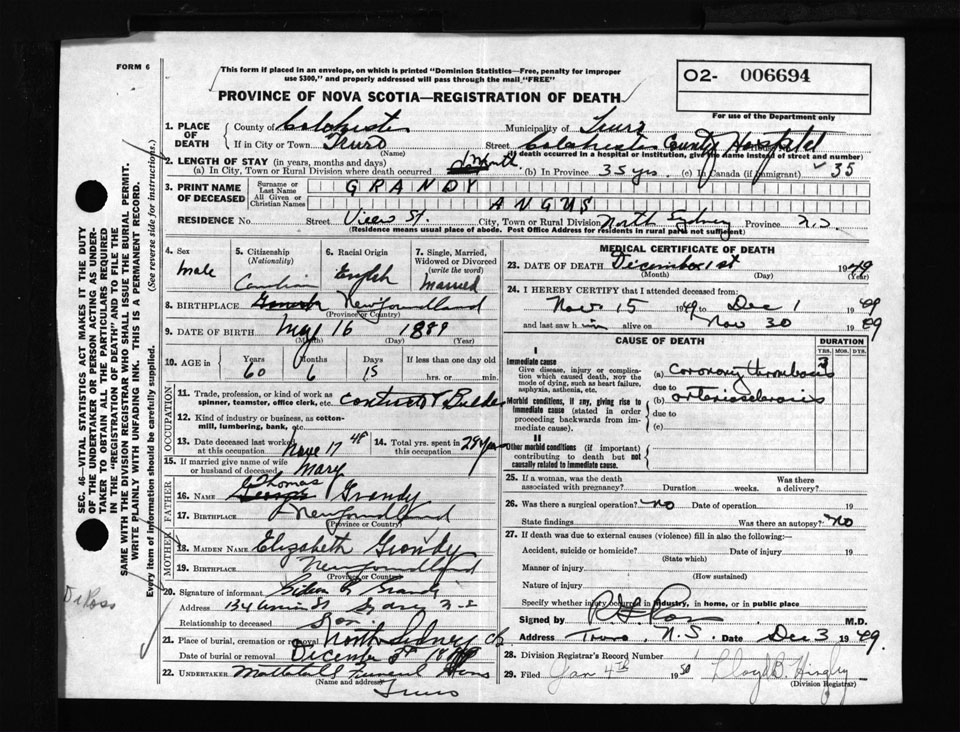 FORM 6
This form if placed in an envelope, on which is printed "Dominion Statistics—Free, penalty for improper
use $300," and properly addressed will pass through the mail "FREE"
PROVINCE OF NOVA SCOTIA—REGISTRATION OF DEATH
02- 006694
For use of the Department only
1. PLACE OF DEATH
County of Colchester Municipality of Truro
If in City or Town Truro Street Colchester County Hospital
(Name) (If death occurred in a hospital or institution, give the name instead of street and number)
2. LENGTH OF STAY (in years, months and days)
(a) In City, Town or Rural Division where death occurred (b) In Province 35 yrs. (c) In Canada (if immigrant) 35
3. PRINT NAME OF DECEASED
Surname or Last Name GRANDY
All Given or Christian Names ANGUS
RESIDENCE No. Street View St. City, Town or Rural Division North Sydney Province N.S.
(Residence means usual place of abode. Post Office Address for residents in rural parts not sufficient)
4. Sex Male
5. Citizenship (Nationality) Canadian
6. Racial Origin English
7. Single, Married, Widowed or Divorced (write the word) Married
8. BIRTHPLACE Newfoundland
(Province or Country)
9. DATE OF BIRTH May 16 1889
(Month) (Day) (Year)
10. AGE in Years 60 Months 6 Days 15 If less than one day old hrs. or min.
OCCUPATION
11. Trade, profession, or kind of work as spinner, teamster, office clerk, etc. Contractor Builder
12. Kind of industry or business, as cotton-mill, lumbering, bank, etc.
13. Date deceased last worked at this occupation 17 48
14. Total yrs. spent in this occupation 25 yrs
15. If married give name of wife or husband of deceased Mary
FATHER
16. NAME Thomas Grandy
17. BIRTHPLACE Newfoundland
(Province or Country)
MOTHER
18. MAIDEN NAME Elizabeth Grandy
19. BIRTHPLACE Newfoundland
(Province or Country)
20. Signature of informant Grandy
Address 134 St Sydney N.S
Relationship to deceased Son
21. Place of burial, cremation or removal North Sydney CB
Date of burial or removal December
22. UNDERTAKER Mattatall Funeral Home
(Name and address)
Truro
MEDICAL CERTIFICATE OF DEATH
23. DATE OF DEATH December 1st 1949
(Month) (Day) (Year)
24. I HEREBY CERTIFY that I attended deceased from:
Nov 15 1949 to Dec 1 1949
and last saw him alive on Nov 30 1949
CAUSE OF DEATH
DURATION
YRS. MOS. DYS.
I
Immediate cause
Give disease, injury or complication which caused death, not the mode of dying, such as heart failure, asphyxia, asthenia, etc.
(a) Coronary thrombosis
due to
Morbid conditions, if any, giving rise to immediate cause (stated in order proceeding backwards from immediate cause).
(b) arteriosclerosis
due to
(c)
II
Other morbid conditions (if important) contributing to death but not causally related to immediate cause.
25. If a woman, was the death associated with pregnancy? Duration weeks. Was there a delivery?
26. Was there a surgical operation? No Date of operation 19
State findings Was there an autopsy? No
27. If death was due to external causes (violence) fill in also the following:—
Accident, suicide or homicide? Date of injury 19
(State which)
Manner of injury
(How sustained)
Nature of injury
Specify whether injury occurred in industry, in home, or in public place
Signed by Ross M.D.
Address Truro, N.S. Date Dec 3 1949
28. Division Registrar's Record Number
29. Filed Jan 4th 1950 Lloyd B.
(Division Registrar)
SEC. 46—VITAL STATISTICS ACT MAKES IT THE DUTY
OF THE UNDERTAKER OR PERSON ACTING AS UNDER-
TAKER TO OBTAIN ALL THE PARTICULARS REQUIRED
IN THE "REGISTRATION OF DEATH" AND TO FILE THE
SAME WITH THE DIVISION REGISTRAR WHO SHALL ISSUE THE BURIAL PERMIT.
WRITE PLAINLY WITH UNFADING INK. THIS IS A PERMANENT RECORD.
Every item of information should be carefully supplied. (See reverse side for instructions.)
Dr Ross